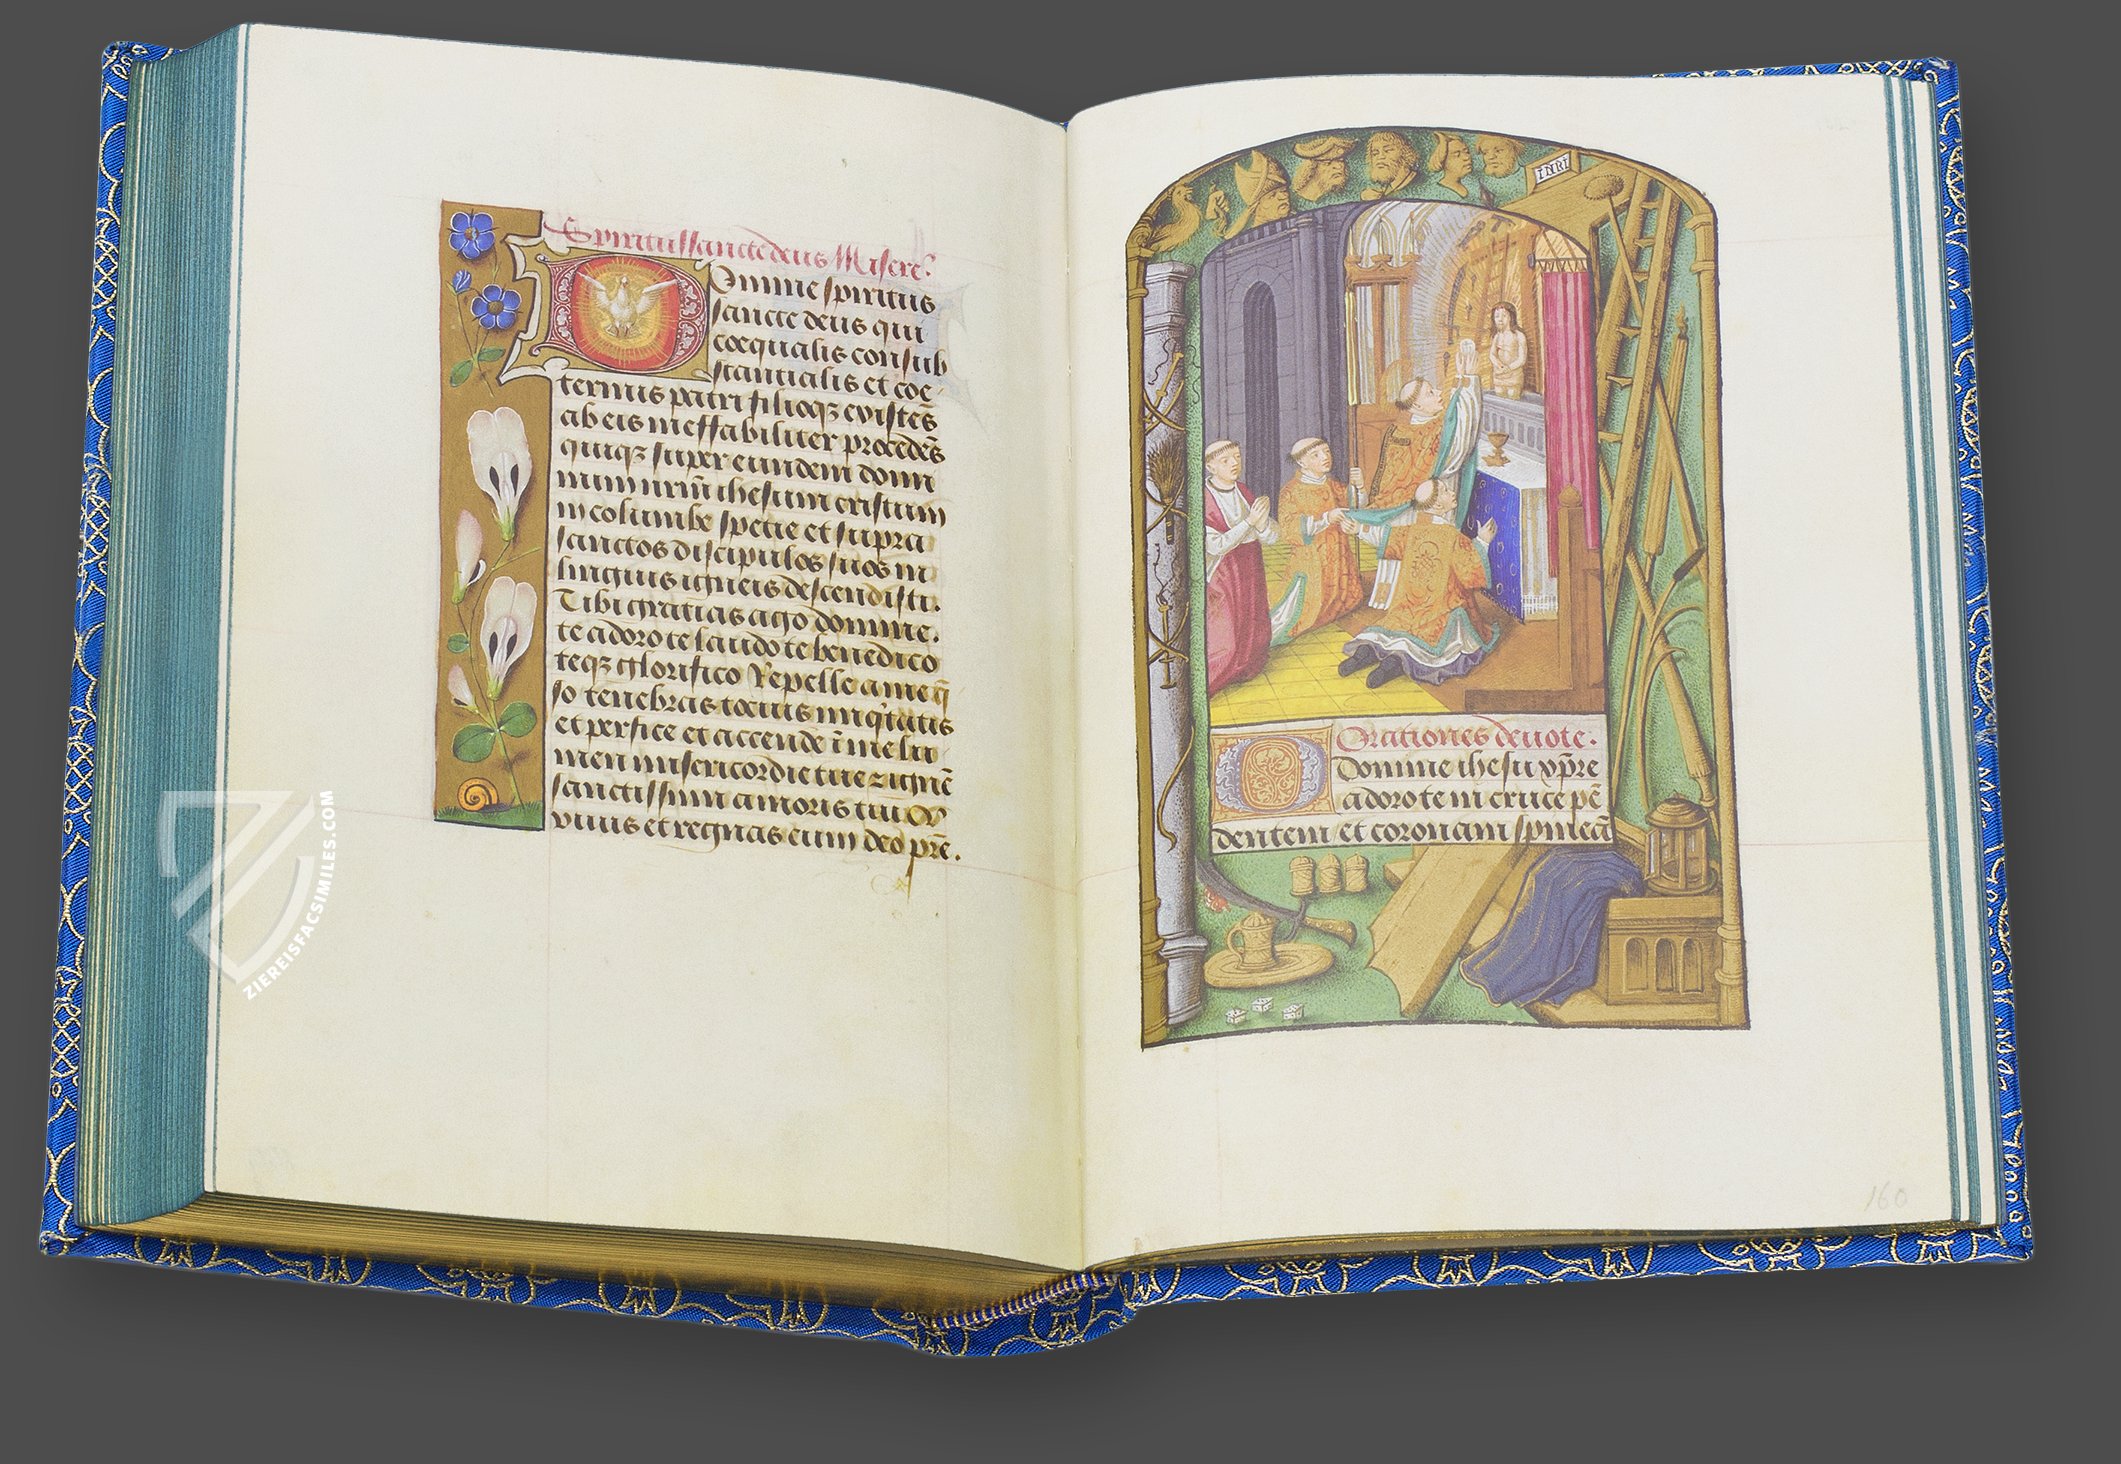 Spiritussancte deus Misere.
Domine spiritus
sancte deus qui
coequalis consub
stantialis et coe
ternus patri filioqꝫ existẽs
ab eis ineffabiliter procedẽs
quiqꝫ super eundem domi
num nr̃m ihesum cristum
in columbe spetie et supra
sanctos discipulos suos in
linguis igneis descendisti.
Tibi gratias ago domine.
te adoro te laudo te benedico
teqꝫ glorifico Repelle a me q̃
so tenebras tocius iniq̃tatis
et perfice et accende ĩ me lu
men misericordie tue ⁊ ignẽ
sanctissimi amoris tui Q̃
viuis et regnas cum deo pr̃e.
INRI
Orationes deuote.
Domine ihesu xp̃re
adoro te in cruce pẽ
dentem et coronam spineã
160
ZIEREISFACSIMILES.COM